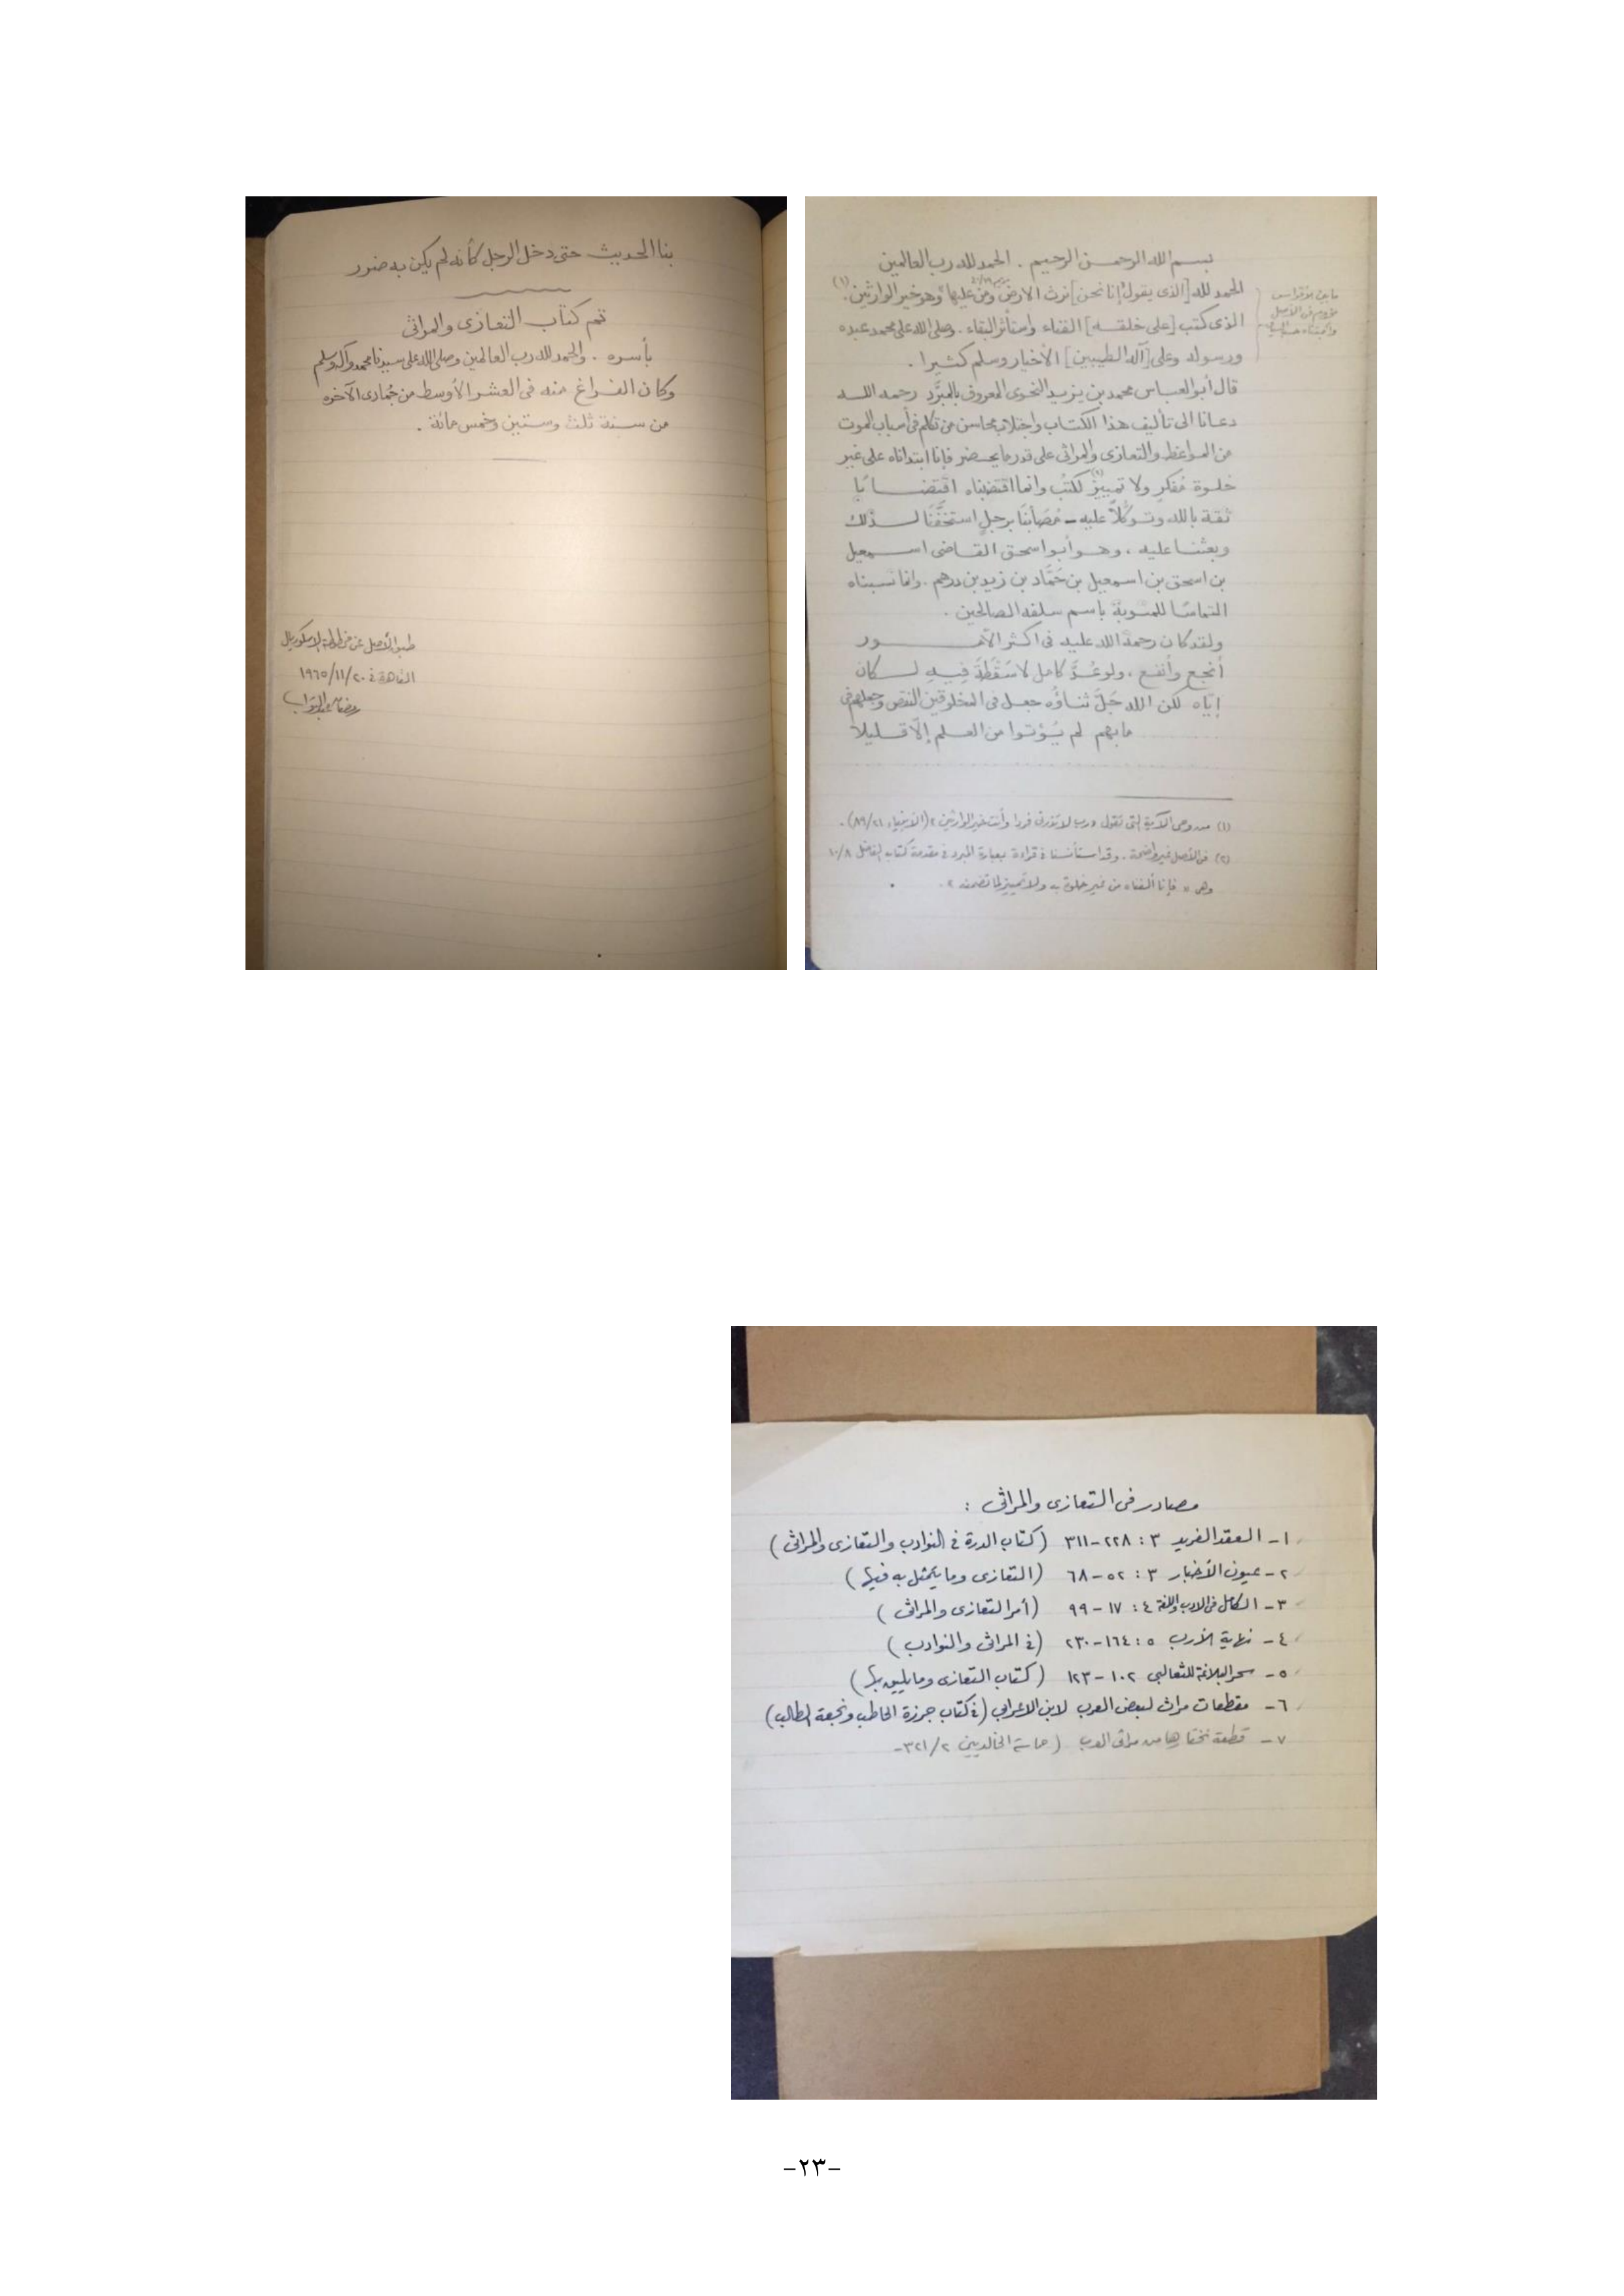 بسم الله الرحمن الرحيم . الحمد لله رب العالمين
الحمد لله [الذى يقول إنا نحن] نرث الأرض ومن عليها وهو خير الوارثين (١)
الذى كتب [على خلقه] الفناء واستأثر البقاء . وصلى الله على محمد عبده
ورسوله وعلى [آله الطيبين] الأخيار وسلم كثيرا .
ما بين الأقواس
فى الأصل
قال أبو العباس محمد بن يزيد النحوى المعروف بالمبرَّد رحمه الله
دعانا الى تأليف هذا الكتاب واجتلاب محاسن من تكلم فى أسباب الموت
من المواعظ والتعازى والمراثى على قدر ما يحضر فإنا ابتدأناه على غير
خلوة مُفكر ولا تمييزٍ (٢) لكتب وانما اقتضبناه اقتضابًا
ثقة بالله وتوكُّلاً عليه - مُصَابُنَا برجلٍ استخفَّنَا لذلك
وبعثنا عليه ، وهو أبو اسحق القاضى اسمعيل
بن اسحق بن اسمعيل بن حَمَّاد بن زيد بن درهم . وانما نسبناه
التماسًا للمثوبة باسم سلفه الصالحين .
ولقد كان رحمة الله عليه فى اكثر الأمور
أنجع وأنفع ، ولو عُدَّ كامل لا سَقْطَةَ فيه لكان
إيّاه لكن الله جَلَّ ثناؤه جعل فى المخلوقين النقص وجعلهم فى
ما بهم لم يُؤتوا من العلم إلّا قليلا
(١) من وحى الآية التى تقول رب لا تذرنى فردا وأنت خير الوارثين (الأنبياء ٨٩/٢١) .
(٢) فى الأصل غير واضحة . وقد استأنسنا فى قراءة بعبارة المبرد فى مقدمة كتاب الفاضل ١٠/٨
وهى « فإنا ألفناه من غير خلوة به ولا تمييز لما تضمنه » .
بنا الحديث حتى دخل الرجل كأنه لم يكن به ضرر
تم كتاب التعازى والمراثى
بأسره . والحمد لله رب العالمين وصلى الله على سيدنا محمد وآله وسلم
وكان الفراغ منه فى العشر الأوسط من جُمادى الآخره
من سنة ثلث وستين وخمس مائة .
طبق الأصل عن مخطوطة الاسكوريال
القاهرة فى ١٩٦٥/١١/٢٠
رمضان عبد التواب
مصادر فى التعازى والمراثى :
١ - العقد الفريد ٣ : ٢٢٨ - ٣١١ (كتاب الدرة فى النوادب والتعازى والمراثى)
٢ - عيون الأخبار ٣ : ٥٢ - ٦٨ (التعازى وما يتمثل به فيها)
٣ - الكامل فى الادب واللغة ٤ : ١٧ - ٩٩ (أمر التعازى والمراثى)
٤ - نهاية الأرب ٥ : ١٦٤ - ٢٣٠ (فى المراثى والنوادب)
٥ - سحر البلاغة للثعالبى ١٠٢ - ١٢٣ (كتاب التعازى وما يليق بها)
٦ - مقطعات مراث لبعض العرب لابن الاعرابى (فى كتاب جرزة الحاطب وتحفة الطالب)
٧ - قطعة نختارها من مراثى العرب (حماسة الخالديين ٣٢١/٢ -
-٢٣-